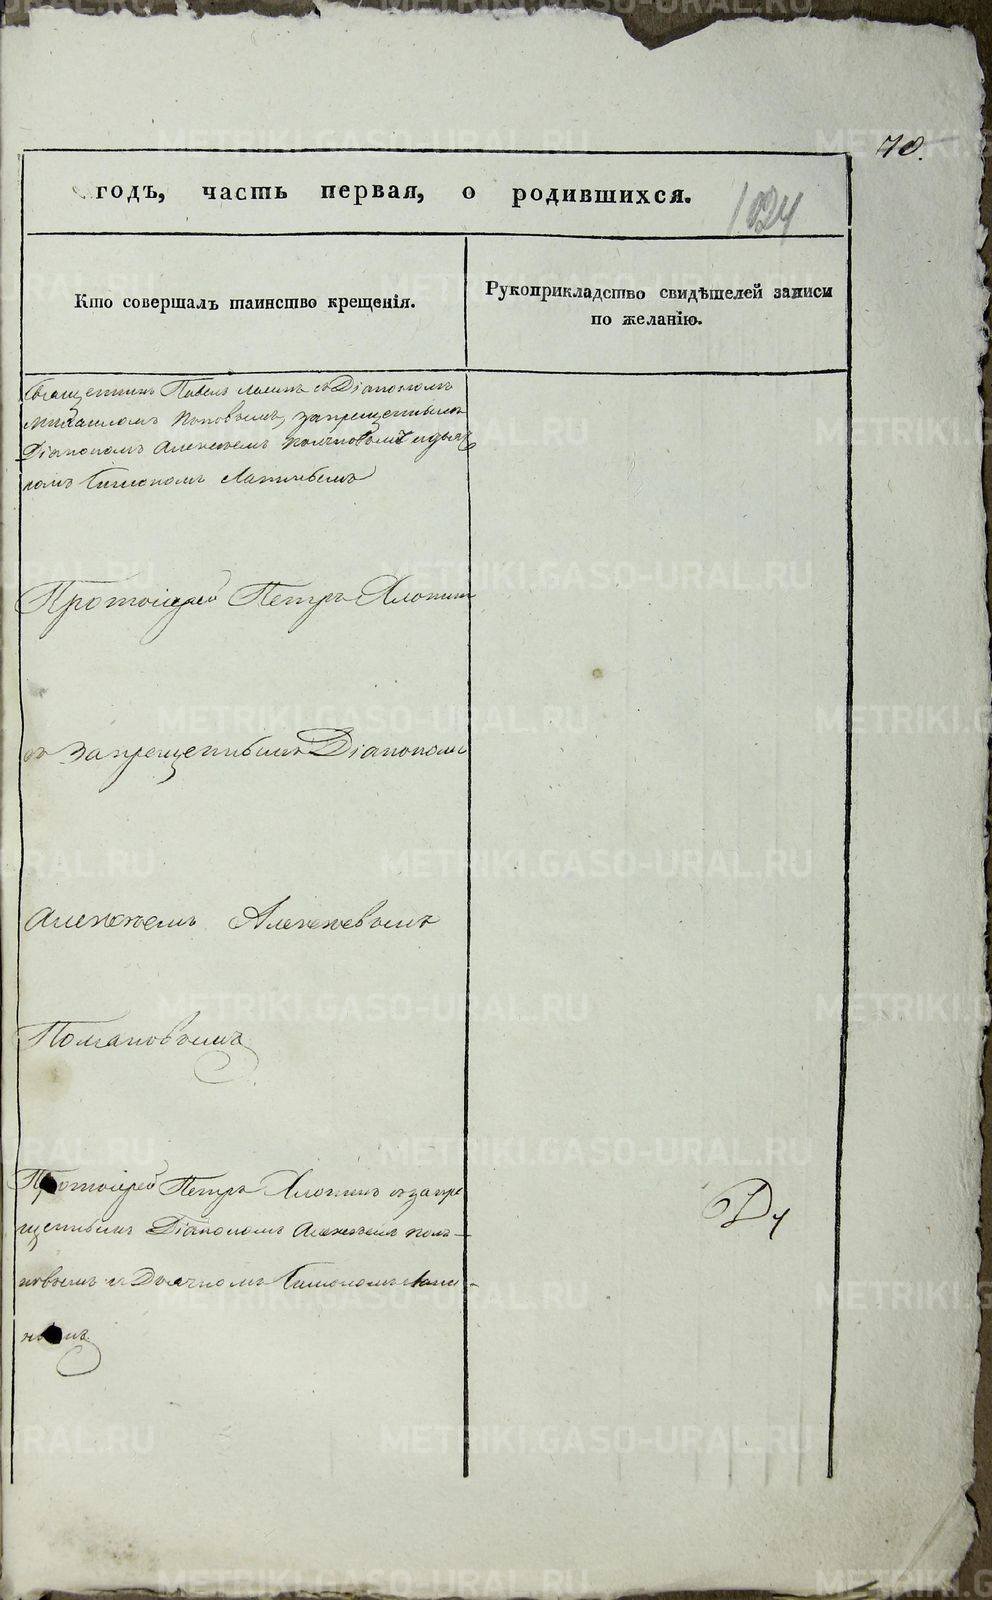 70.
годъ, часть первая, о родившихся.
1024
Кто совершалъ таинство крещенія.
Рукоприкладство свидѣтелей записи
по желанію.
Священникъ Павелъ съ Діакономъ
Михаиломъ Поповымъ, запрещеннымъ
Діакономъ Алексѣемъ
комъ Симономъ
Протоіерей Петръ
съ запрещеннымъ Діакономъ
Алексѣемъ Алексѣевымъ
Помановымъ
Протоіерей Петръ съ запре
щеннымъ Діакономъ Алексѣемъ Пома-
новымъ и Дьячкомъ Симономъ
METRIKI.GASO-URAL.RU